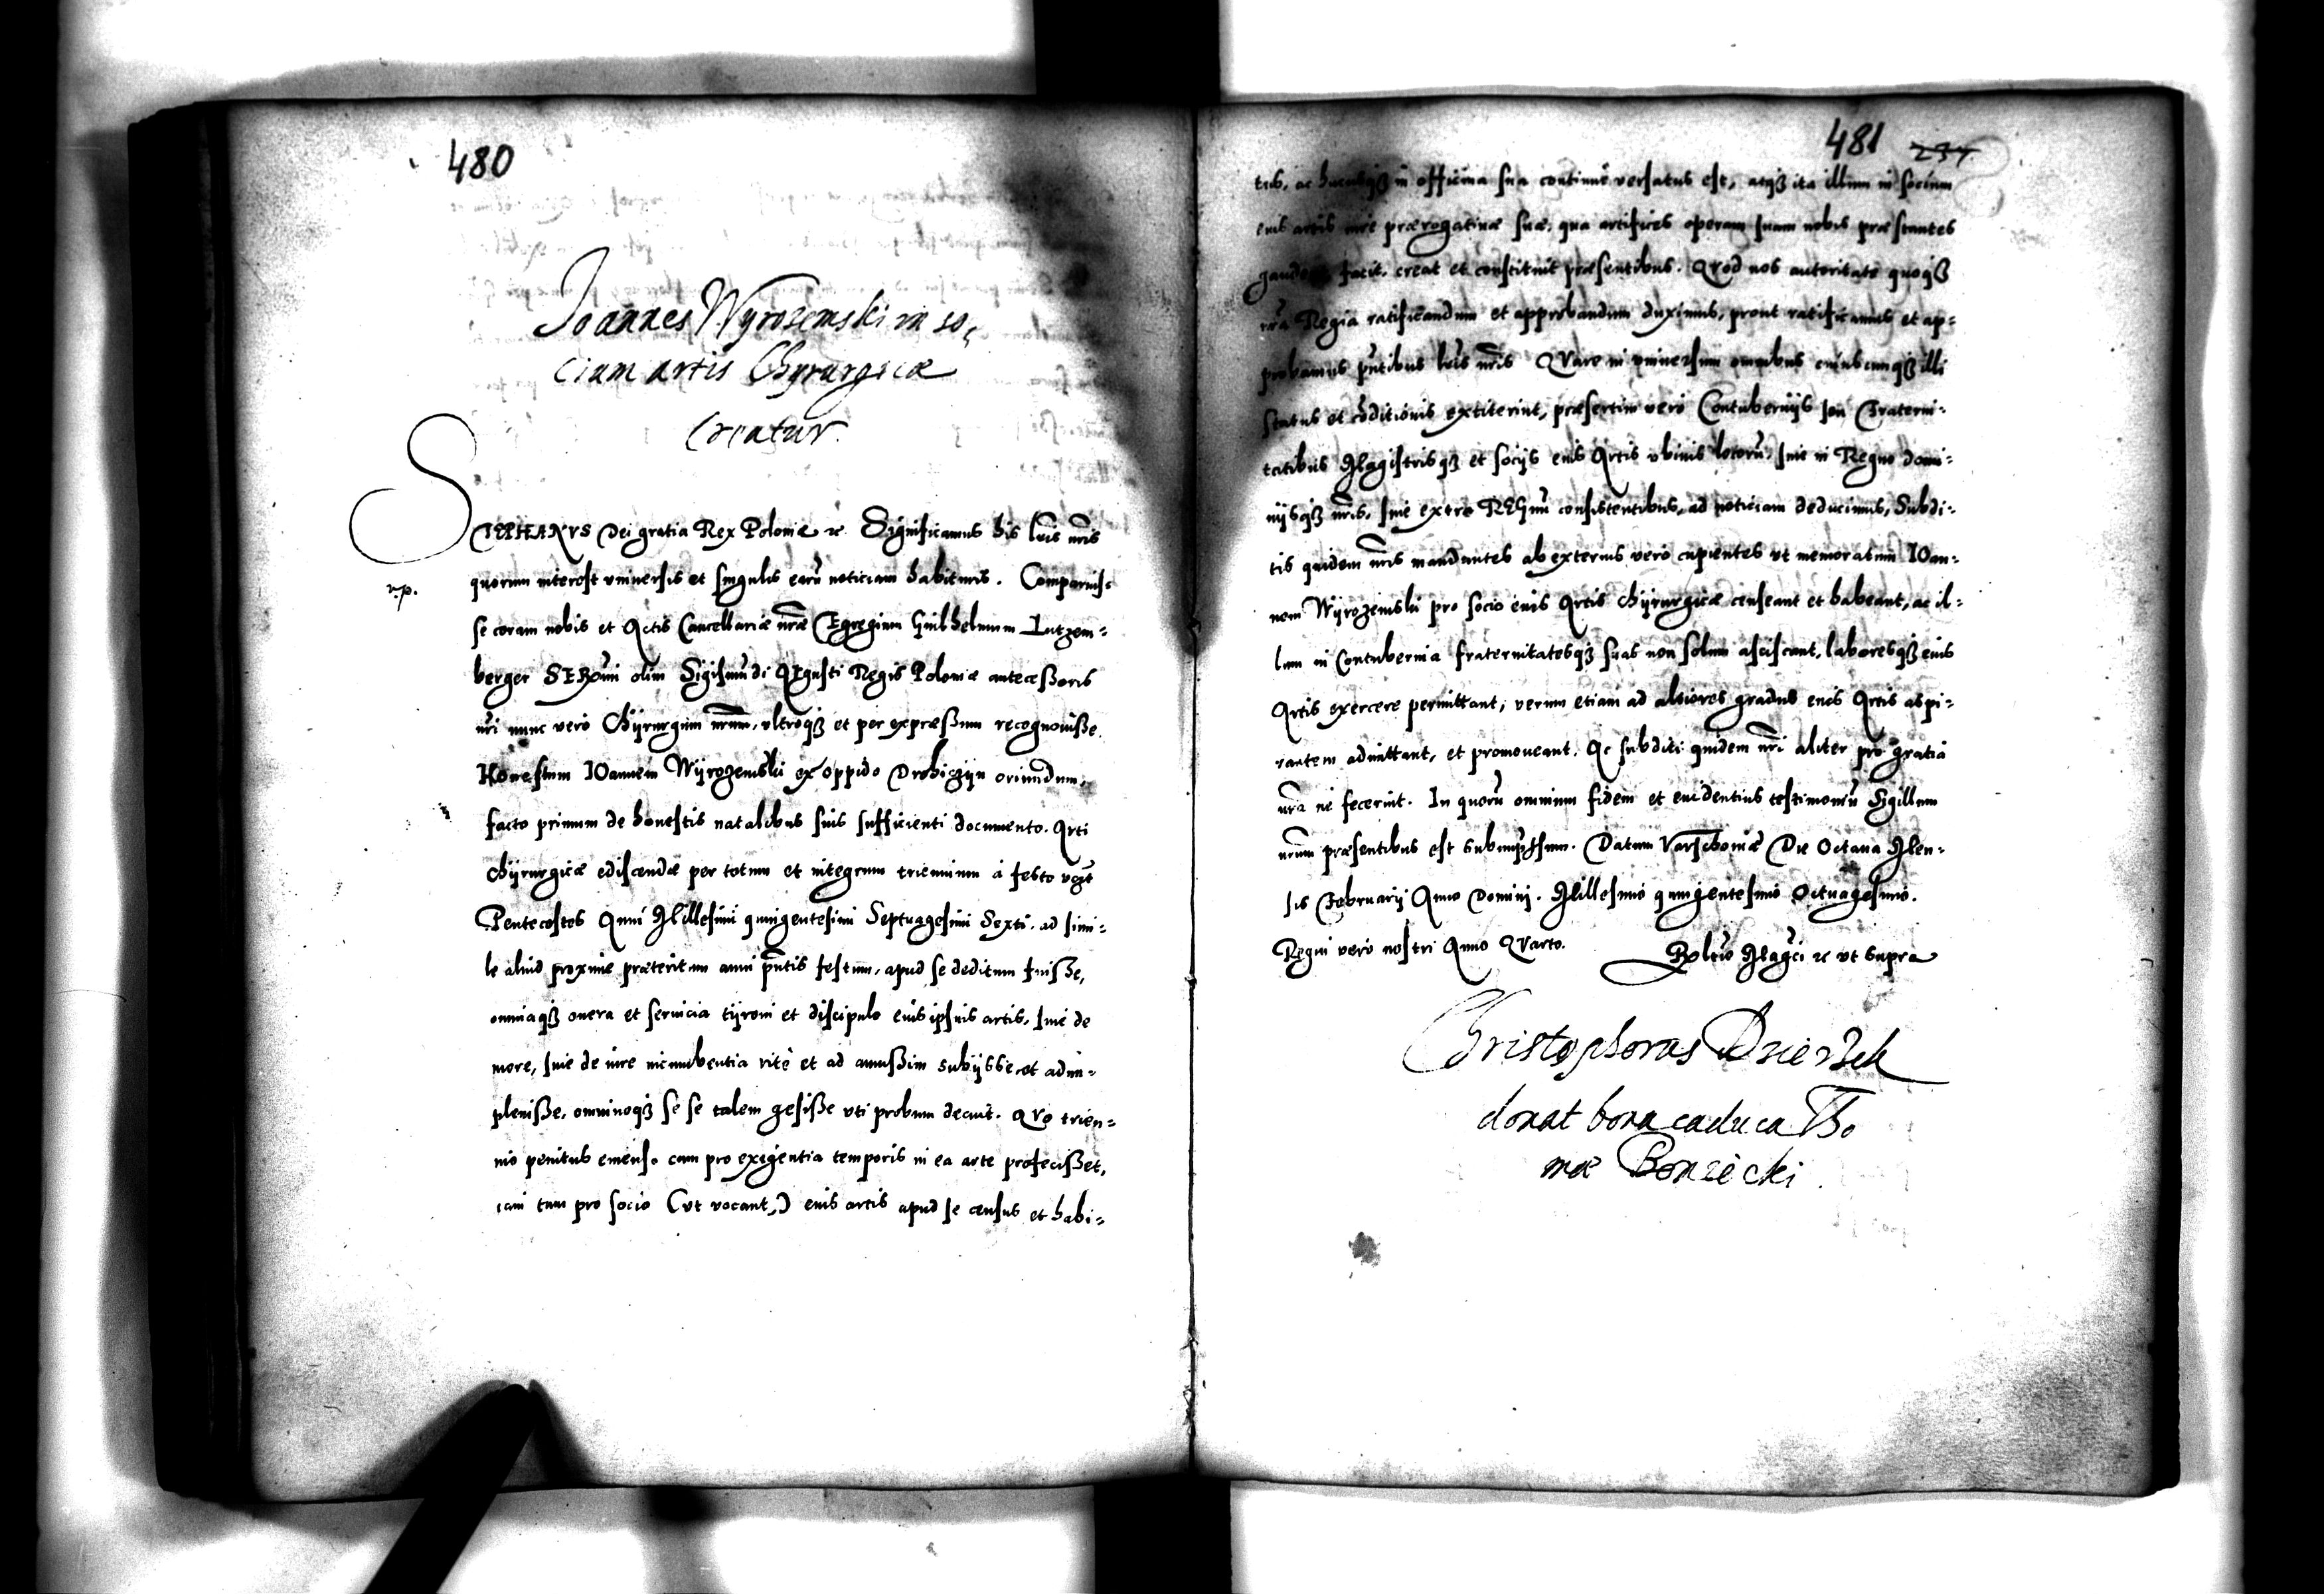 480
Joannes Wyrozemski in so-
cium artis Chyrurgicæ
Creatur.
STEPHANVS Dei gratia Rex Poloniæ &c. Significamus his lr̃is nr̃is
quorum interest vniuersis et singulis earũ noticiam habituris. Comparuis-
r.p.
se coram nobis et Actis Cancellariæ nr̃æ Egregium Guilhelmum Lutzem-
berger SERui olim Sigismũdi AVgusti Regis Poloniæ antecæßoris
nr̃i nunc verò Chyrurgum nr̃um, vltroq₃ et per expræßum recognouiße
Honestum IOannem Wyrozemski ex oppido Drohiczyn oriundum,
facto primum de honestis natalibus suis sufficienti documento. Arti
chyrurgicæ ediscendæ per totum et integrum triennium à festo
Pentecostes Anni Millesimi quingentesimi Septuagesimi Sexti. ad simi-
le aliud proxime præteritum anni pñtis festum, apud se deditum fuiße,
omniaq₃ onera et seruicia tyroni et discipulo euis ipsius artis, siue de
more, siue de iure incumbentia ritè et ad amußim subijsse, et adim-
pleniße, omninoq₃ se se talem gesiße vti probum decuit. QVo trien-
nio penitus emenso cum pro exigentia temporis in ea arte profecißet,
iam tum pro socio (vt vocant,) euis artis apud se census et habi-
481 237
tus, ac hucusq₃ in officina sua continuè versatus est, atq₃ ita illum in socium
euis artis iure prærogatiuæ suæ, qua artifices operam suam nobis præstantes
facit, creat et constituit præsentibus. QVod nos autoritate quoq₃
nr̃a Regia ratificandum et approbandum duximus, prout ratificamus et ap-
probamus pñtibus lr̃is nr̃is QVare in vniuersum omnibus cuiuscunq₃ illi
status et cõditionis extiterint, præsertim verò Contubernijs seu Fraterni-
tatibus Magistrisq₃ et socijs euis Artis vbiuis locorũ, siue in Regno domi-
nijsq₃ nr̃is, siue extra REgnũ consistentibus, ad noticiam deducimus, Subdi-
tis quidem nr̃is mandantes ab externis verò cupientes vt memoratum IOan-
nem Wyrozemski pro socio euis Artis chyrurgicæ censeant et habeant, ac il-
lum in Contubernia fraternitatesq₃ suas non solum asciscant, laboresq₃ euis
Artis exercere permittant, verum etiam ad altiores gradus euis Artis aspi-
rantem admittant, et promoueant. Ac subditi quidem nr̃i aliter pro gratia
nr̃a ne fecerint. In quorũ omnium fidem et euidentius testimoniũ Sigillum
nr̃um præsentibus est subimpressum. Datum Varschouiæ Die Octaua Men-
sis Februarij Anno Domini. Millesimo quingentesimo Octuagesimo.
Regni verò nostri Anno QVarto. Roltio Magci &c vt supra
Christophorus Dzierzek
donat bona caduca Tho
mæ Boniecki.